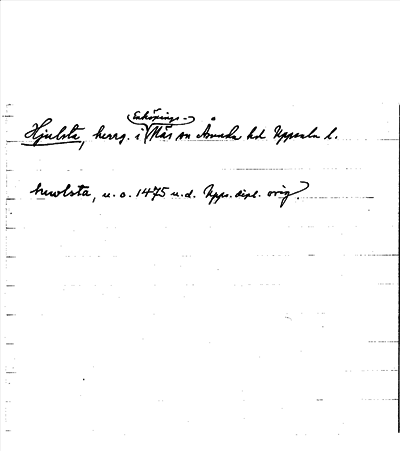 Enköpings-
Hjulsta, herrg. i Näs sn Åsunda hd Uppsala l.
hwlsta, u. o. 1475 u.d. Upps. dipl. orig.